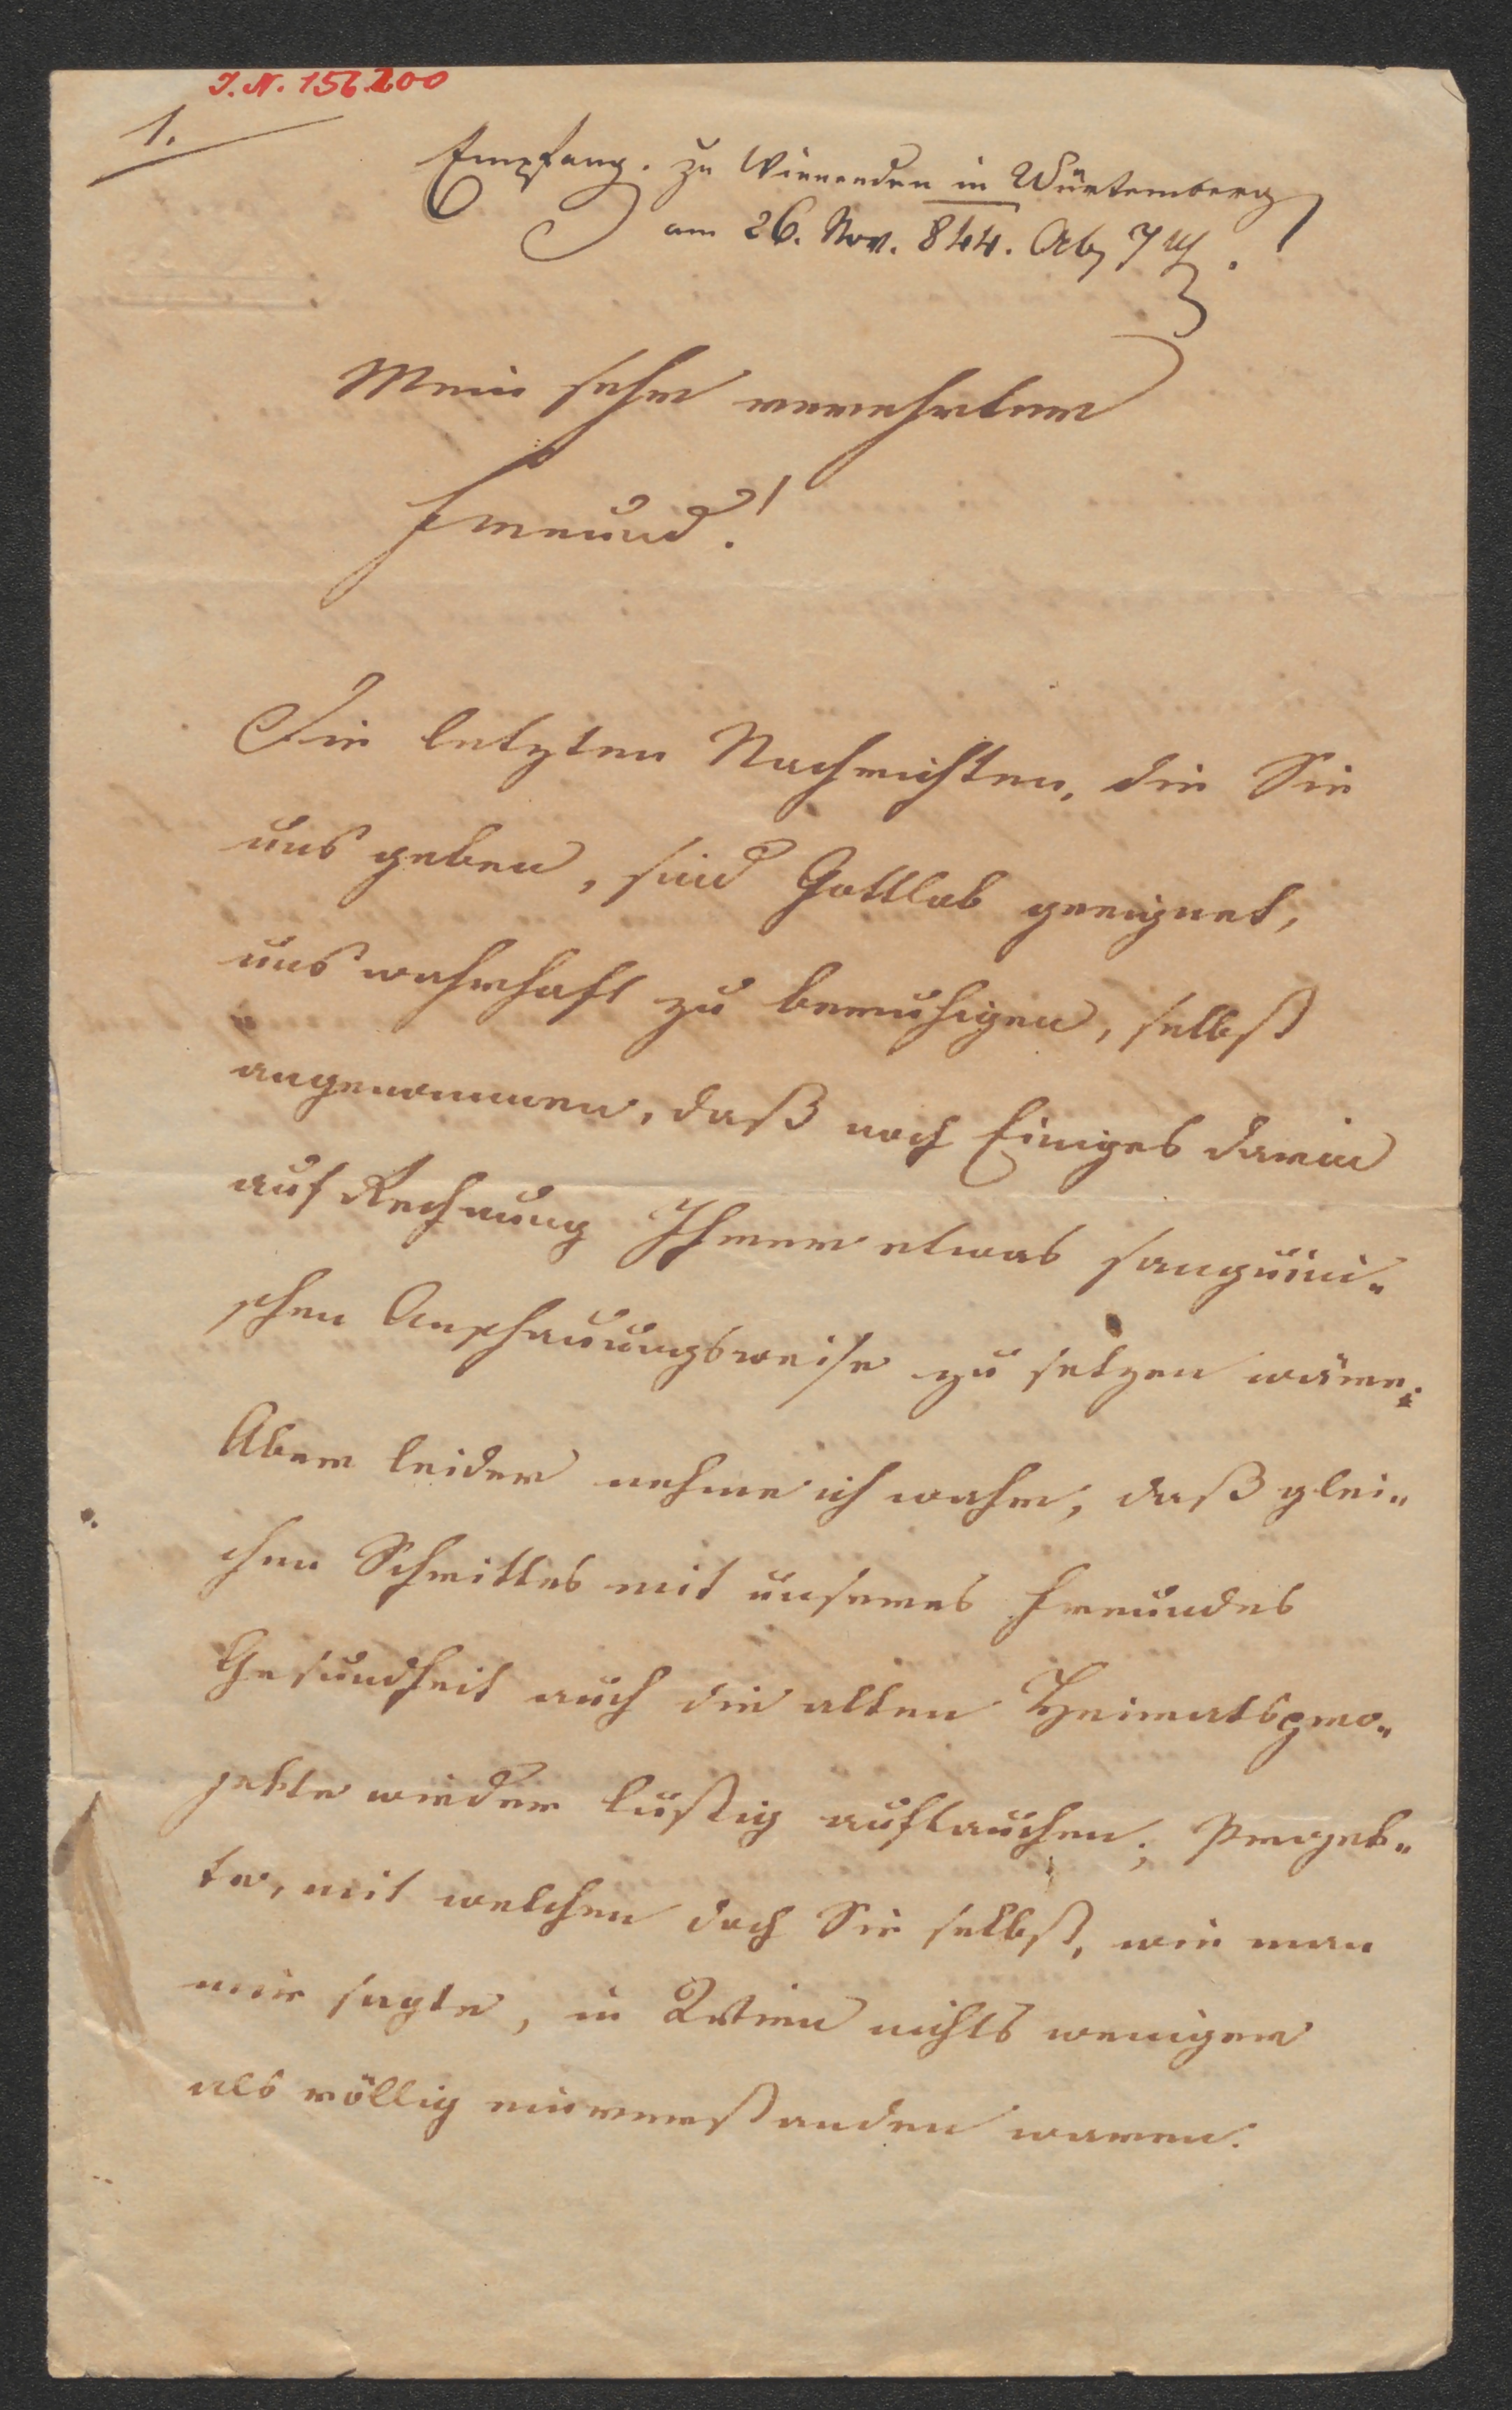 J. N. 156.200
1.
Empfang. zu Winnenden in Würtemberg
am 26. Nov. 844. Ab, 7 U.
Mein sehr verehrter
Freund!
Die letzten Nachrichten, die Sie
uns geben, sind Gottlob geeignet,
uns wahrhaft zu beruhigen, selbst
angenommen, daß noch Einiges darin
auf Rechnung Ihrer etwas sanguini„
schen Anschauungsweise zu setzen wäre.
Aber leider nehme ich wahr, daß glei„
chen Schrittes mit unseres Freundes
Gesundheit auch die alten Heimatspro„
jekte wieder lustig auftauchen; Projek„
te, mit welchen doch Sie selbst, wie man
mir sagte, in Wien nichts weniger
als völlig einverstanden waren.